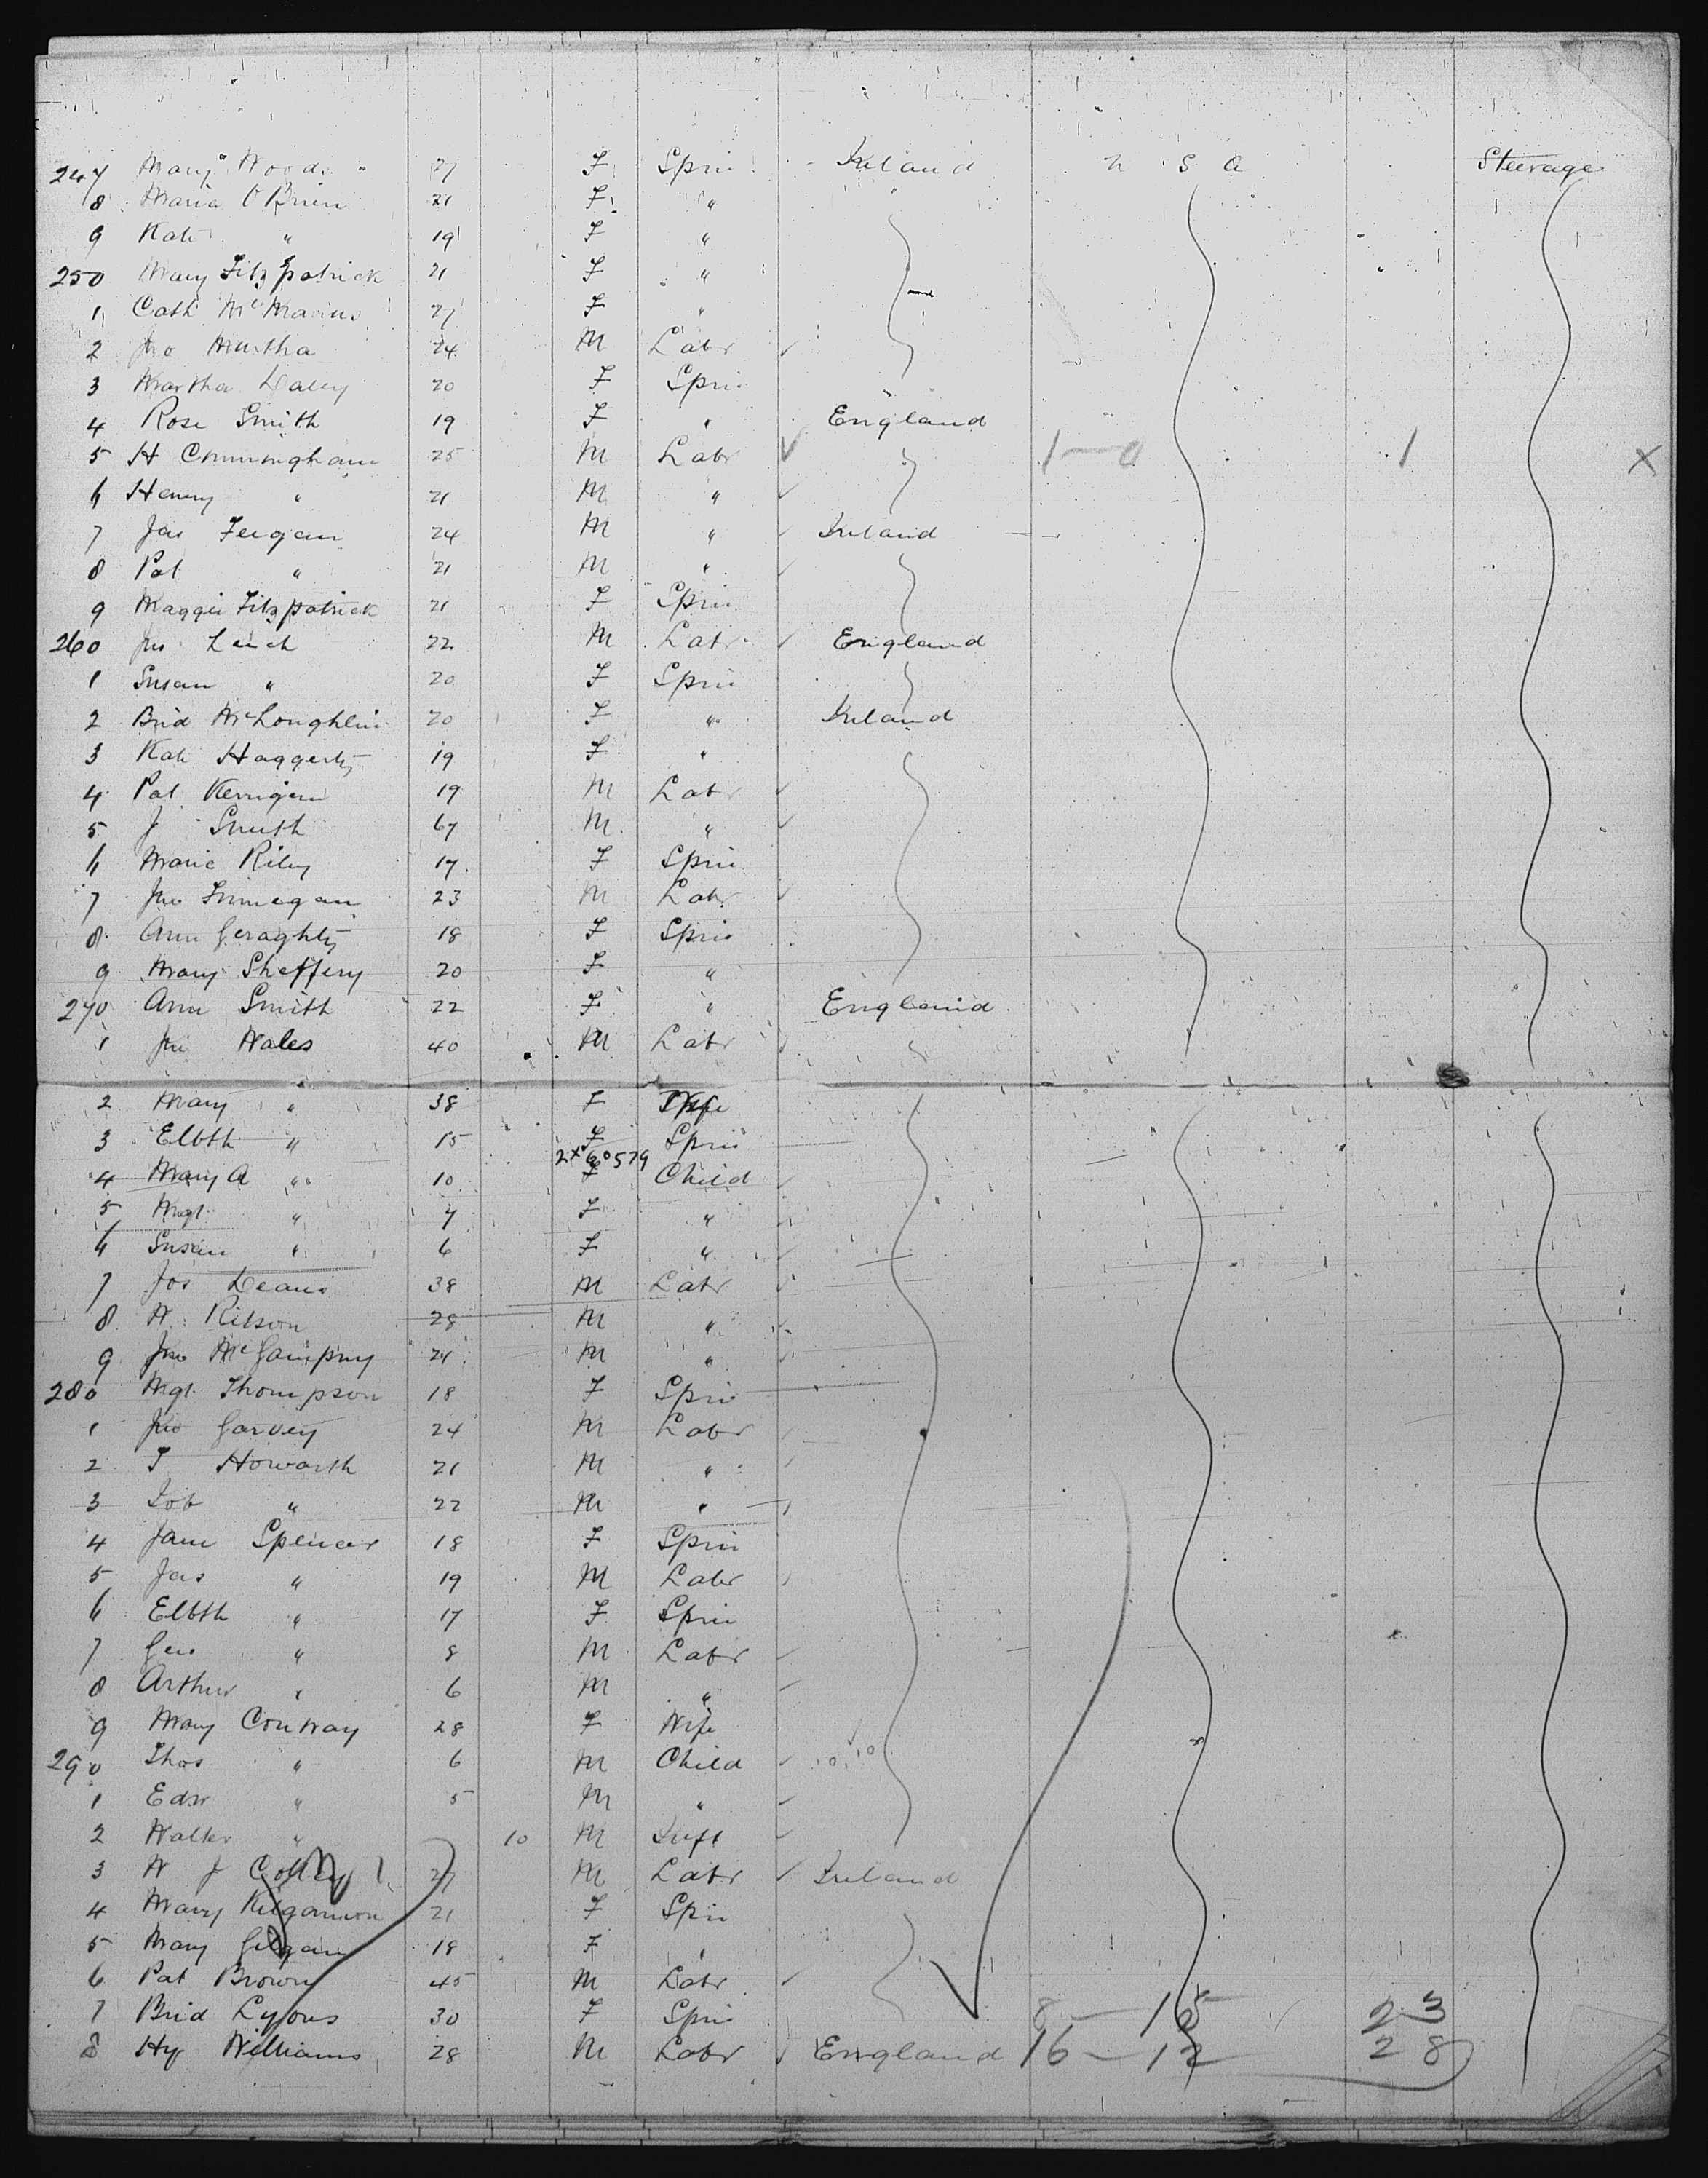 247 Mary Woods " 27 F Spin Ireland U S A Steerage
8 Maria O'Brien 21 F "
9 Kate " 19 F "
250 Mary Fitzpatrick 21 F "
1 Cath Mc 27 F "
2 Jno Murtha 24 M Labr ✓
3 Martha Daley 20 F Spin
4 Rose Smith 19 F " England
5 H Cunningham 25 M Labr ✓ 1 — 0 1 X
6 Henry " 21 M " ✓
7 Jas Fergan 24 M " ✓ Ireland
8 Pat " 21 M " ✓
9 Maggie Fitzpatrick 21 F Spin
260 Jno Leich 22 M Labr ✓ England
1 Susan " 20 F Spin
2 Brid McLoughlin 20 F " Ireland
3 Kate Haggerty 19 F "
4 Pat Kerrigan 19 M Labr ✓
5 J Smith 67 M " ✓
6 Maria Riley 17 F Spin
7 Jno Finnegan 23 M Labr ✓
8 Ann Geraghty 18 F Spin
9 Mary Sheffery 20 F "
270 Ann Smith 22 F " England
1 Jno Wales 40 M Labr ✓
2 Mary " 38 F Wife
3 Elbth " 15 F Spin
2 x 60579
4 Mary A " 10 F Child ✓
5 Mgt " 7 F " ✓
6 Susan " 6 F " ✓
7 Jos Deans 38 M Labr ✓
8 W. Ritson 28 M " ✓
9 Jno 21 M " ✓
280 Mgt Thompson 18 F Spin
1 Jno Garvey 24 M Labr ✓
2 T Howarth 21 M " ✓
3 Job " 22 M " ✓
4 Jane Spencer 18 F Spin
5 Jas " 19 M Labr ✓
6 Elbth " 17 F Spin
7 Geo " 8 M Labr ✓
8 Arthur " 6 M " ✓
9 Mary Conway 28 F Wife
290 Thos " 6 M Child ✓
1 Edw " 5 M " ✓
2 Walter " 10 M Inft ✓
3 W J 27 M Labr ✓ Ireland
4 Mary Kilgannon 21 F Spin
5 Mary Gilgan 18 F "
6 Pat Brown 45 M Labr ✓
7 Brid Lyons 30 F Spin 8 — 15 23
8 Hy Williams 28 M Labr ✓ England 16 — 12 28